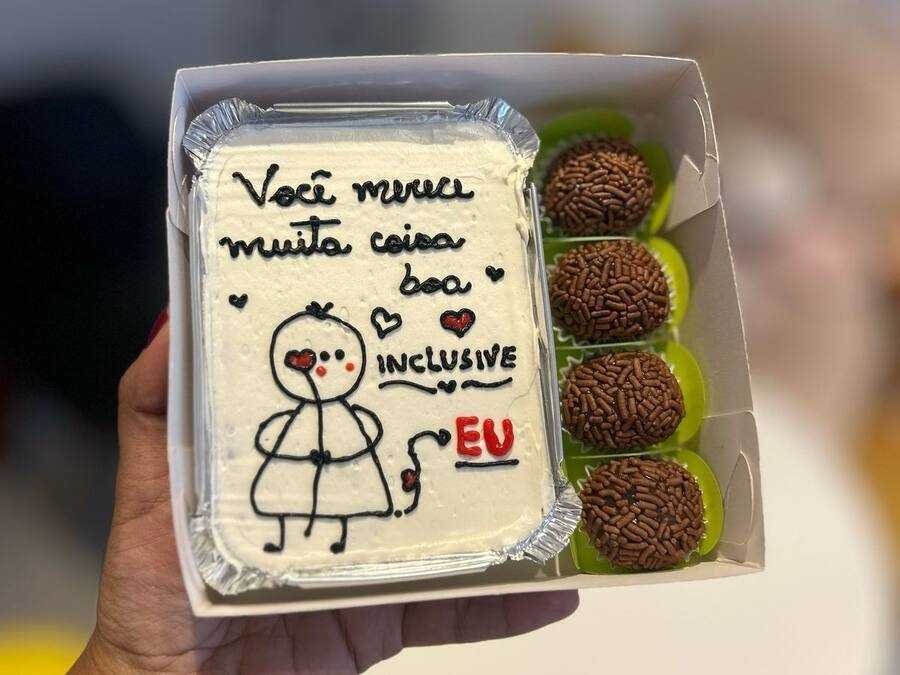 Você merece
muita coisa
boa
INCLUSIVE
EU